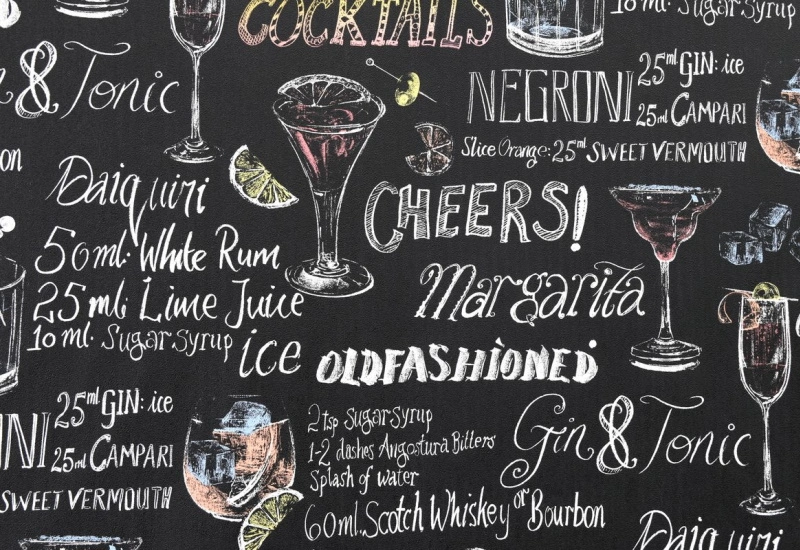 COCKTAILS
10 ml. Sugar syrup
& Tonic
NEGRONI
25ml GIN: ice
25ml CAMPARI
Slice Orange: 25ml SWEET VERMOUTH
Daiquiri
50 ml. White Rum
25 ml. Lime Juice
10 ml. Sugar syrup
ice
CHEERS!
Margarita
OLDFASHIONED
2 tsp sugar syrup
1-2 dashes Angostura Bitters
Splash of water
60 ml. Scotch Whiskey or Bourbon
Gin & Tonic
NI
25ml GIN: ice
25ml CAMPARI
SWEET VERMOUTH
Daiquiri